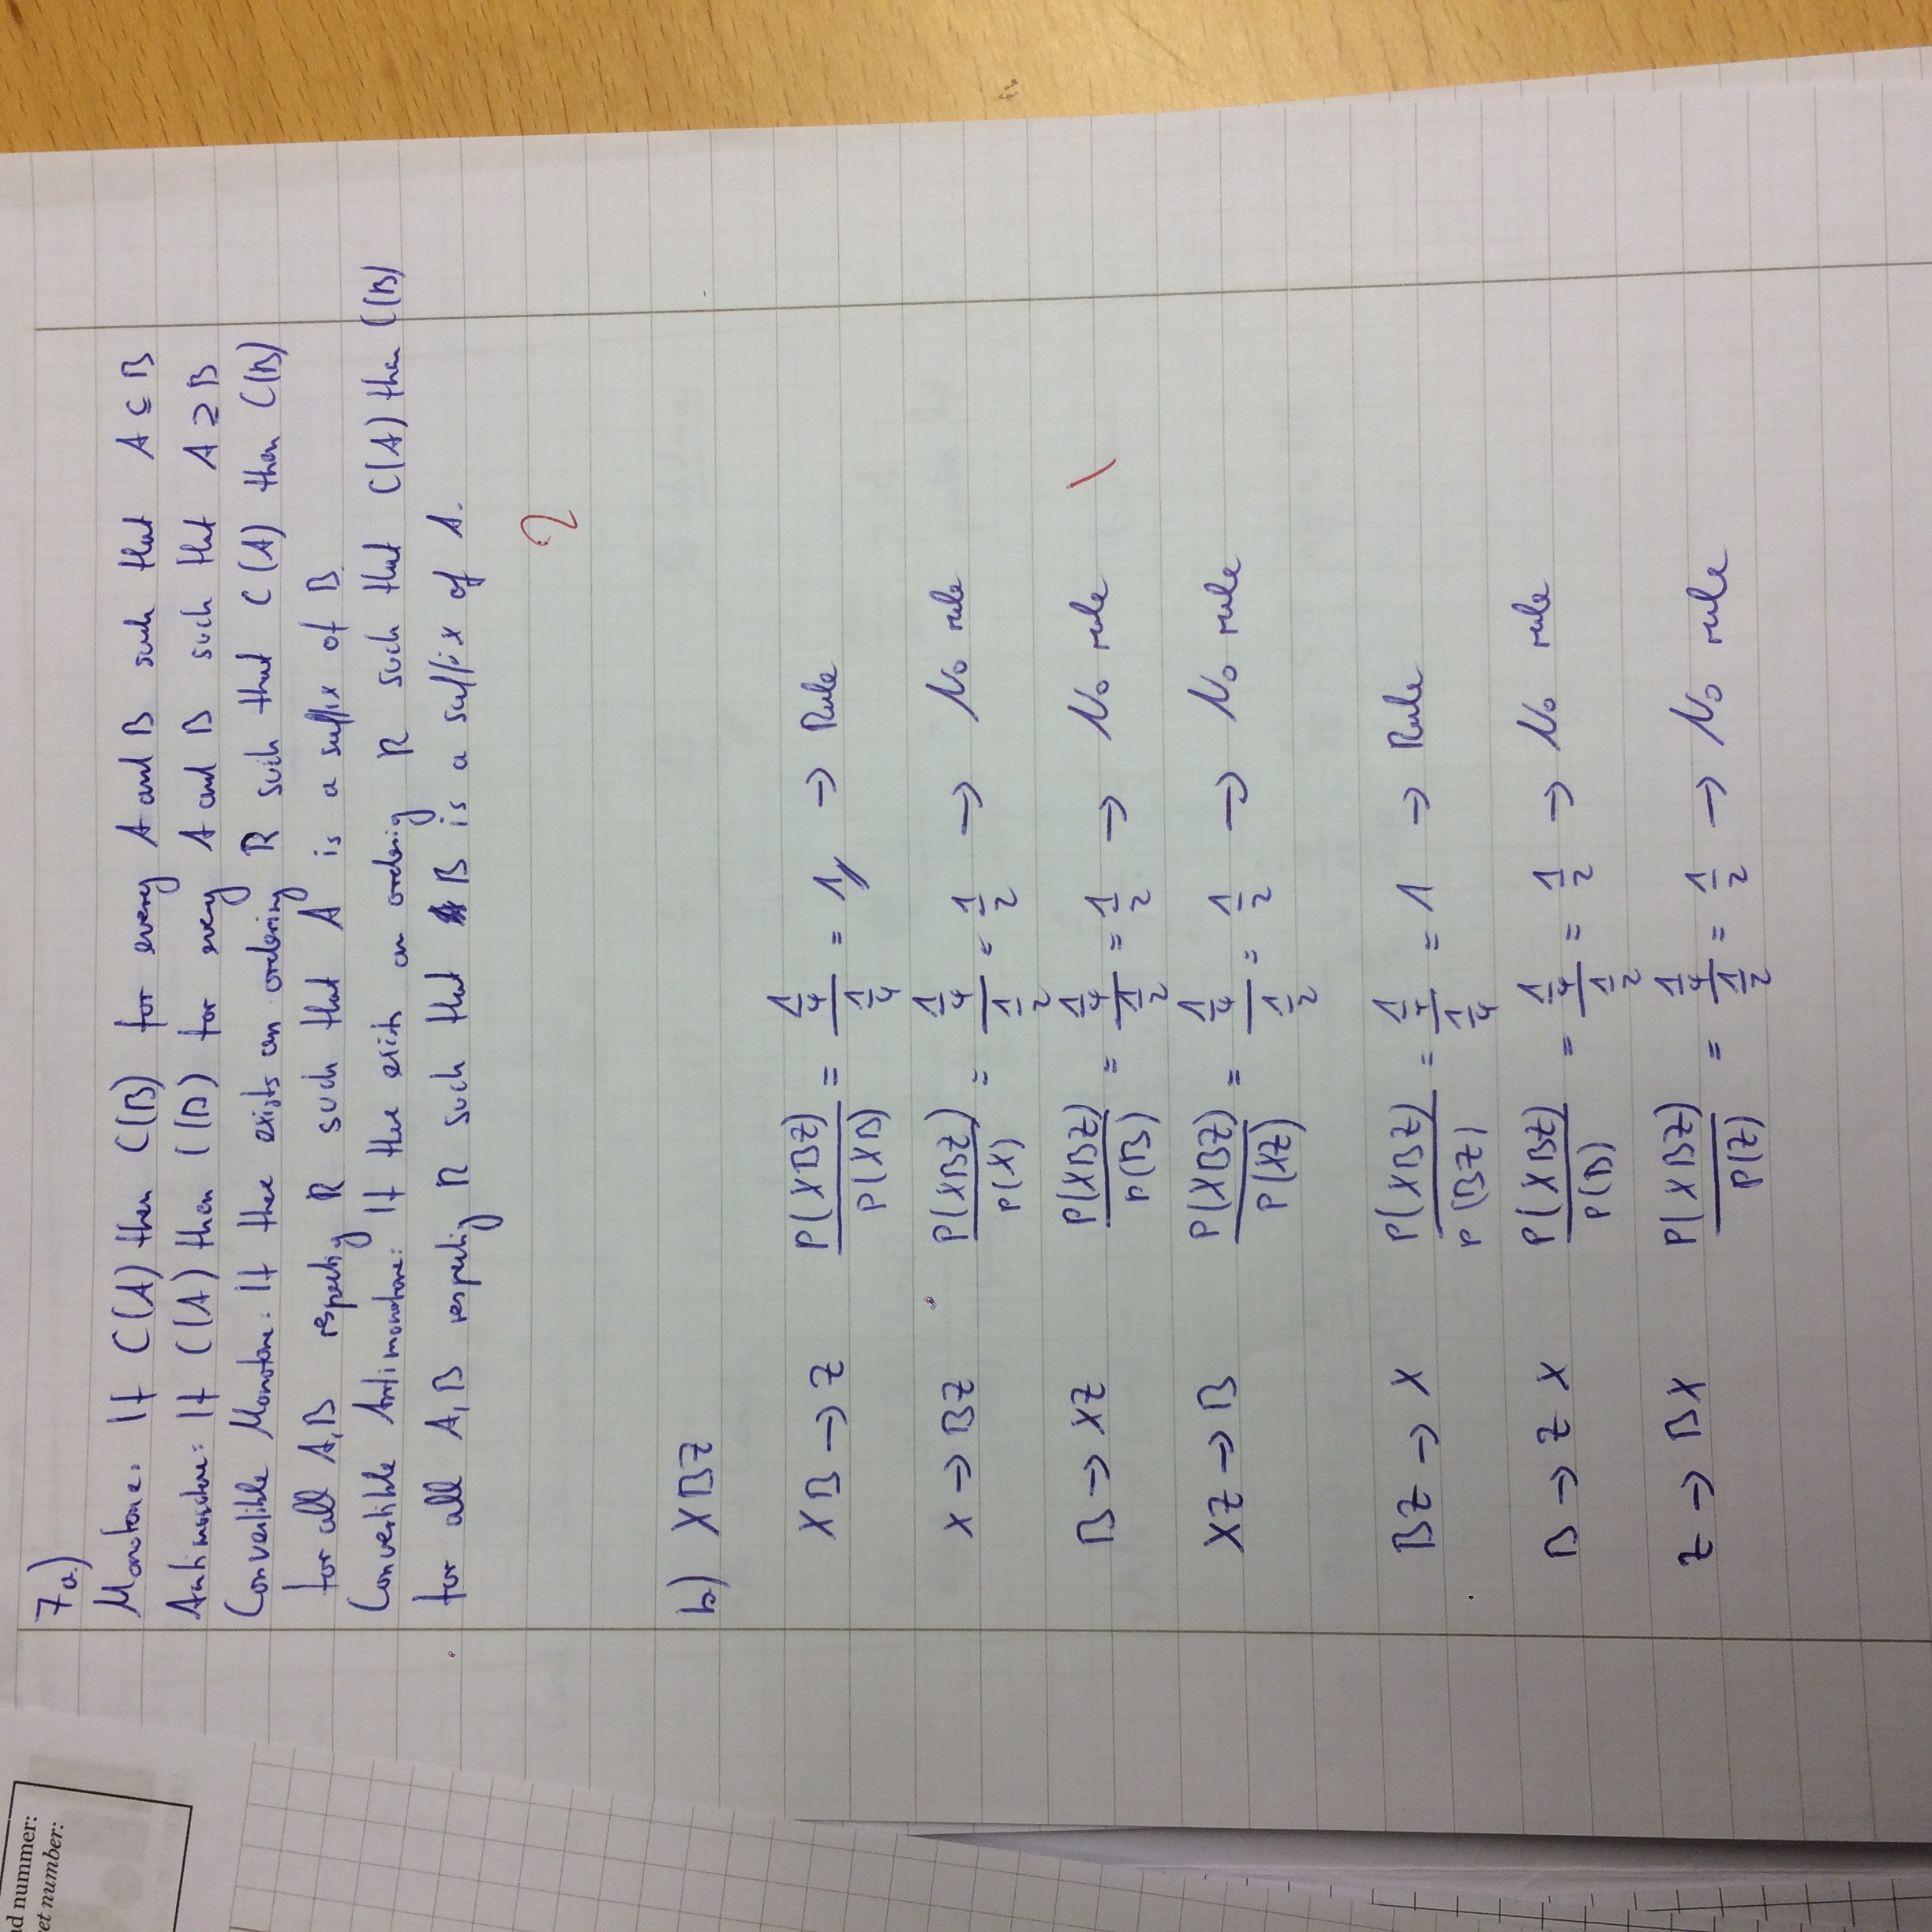 nd nummer:
et number:
7a.)
Monotone: If C(A) then C(B) for every A and B such that A ⊆ B
Antimonotone: If C(A) then C(B) for every A and B such that A ⊇ B
Convertible Monotone: If there exists an ordering R such that C(A) then C(B)
for all A,B respecting R such that A is a suffix of B.
Convertible Antimonotone: If there exists an ordering R such that C(A) then C(B)
for all A,B respecting R such that B is a suffix of A.
2
b) XBZ
XB → Z P(XBZ)/P(XB) = 1/4 / 1/4 = 1 → Rule
X → BZ P(XBZ)/P(X) = 1/4 / 1/2 = 1/2 → No rule
B → XZ P(XBZ)/P(B) = 1/4 / 1/2 = 1/2 → No rule
XZ → B P(XBZ)/P(XZ) = 1/4 / 1/2 = 1/2 → No rule
BZ → X P(XBZ)/P(BZ) = 1/4 / 1/4 = 1 → Rule
B → Z X P(XBZ)/P(B) = 1/4 / 1/2 = 1/2 → No rule
Z → BX P(XBZ)/P(Z) = 1/4 / 1/2 = 1/2 → No rule